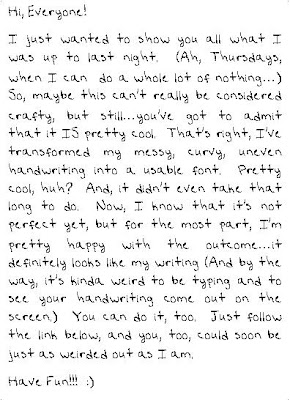 Hi, Everyone!
I just wanted to show you all what I
was up to last night. (Ah, Thursdays,
when I can do a whole lot of nothing...)
So, maybe this can't really be considered
crafty, but still...you've got to admit
that it IS pretty cool. That's right, I've
transformed my messy, curvy, uneven
handwriting into a usable font. Pretty
cool, huh? And, it didn't even take that
long to do. Now, I know that it's not
perfect yet, but for the most part, I'm
pretty happy with the outcome...it
definitely looks like my writing (And by the
way, it's kinda weird to be typing and to
see your handwriting come out on the
screen.) You can do it, too. Just follow
the link below, and you, too, could soon be
just as weirded out as I am.
Have Fun!!! :)